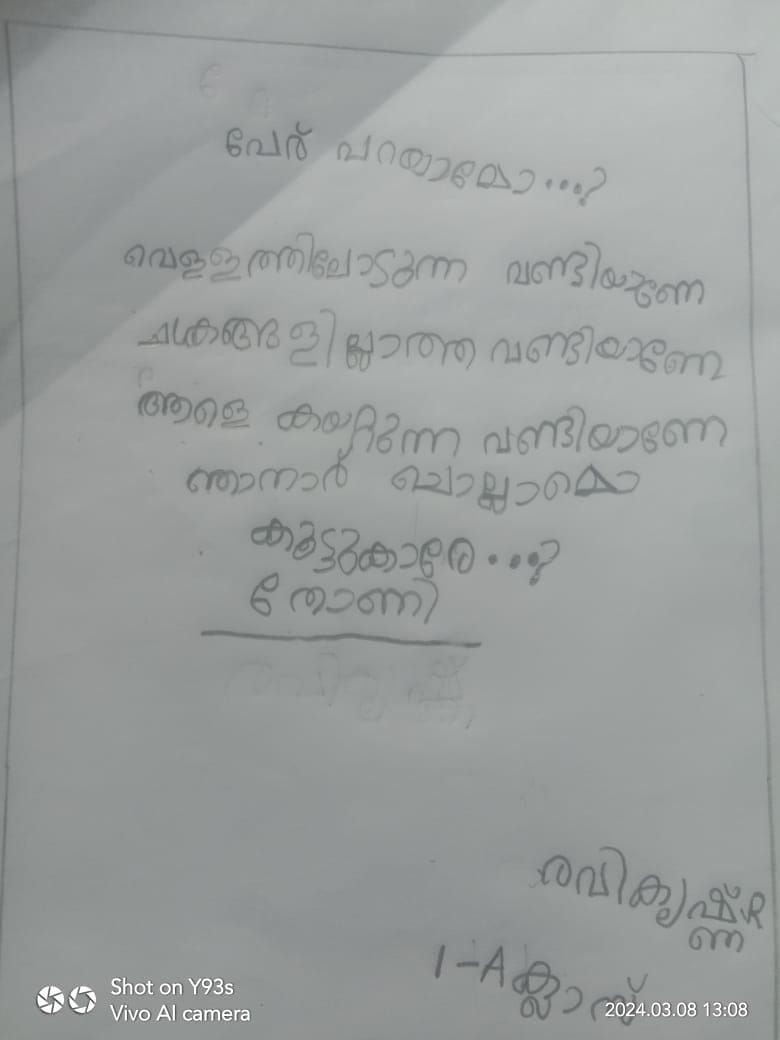 പേര് പറയാമോ...?
വെള്ളത്തിലോടുന്ന വണ്ടിയാണേ
ചക്രങ്ങളില്ലാത്ത വണ്ടിയാണേ
ആളെ കയറ്റുന്ന വണ്ടിയാണേ
ഞാനാര് ചൊല്ലാമൊ
കൂട്ടുകാരേ...?
തോണി
രവികൃഷ്ണ R
1-A ക്ലാസ്
Shot on Y93s
Vivo AI camera
2024.03.08 13:08